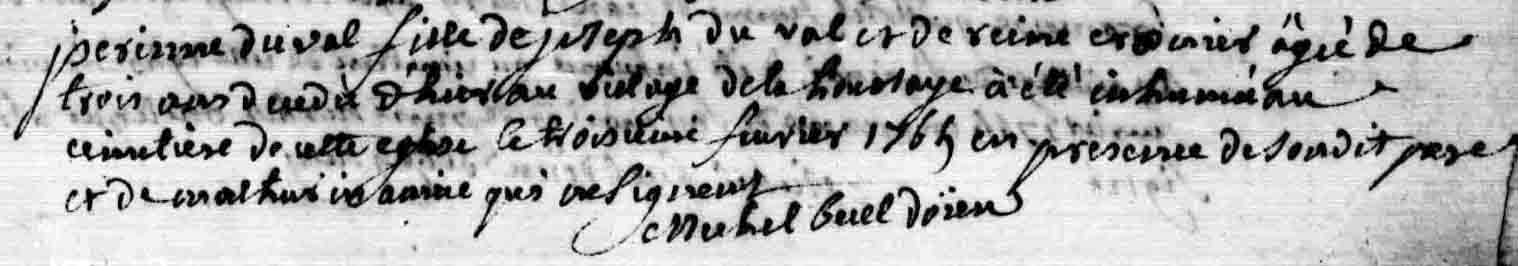 perinne du val fille de joseph du val et de reine agé de
trois ans decedé d'hier au vilage de la houssaye à été inhumé au
cimetiere de cette eglise le troisieme fevrier 1765 en presence de son dit pere
et de mathurin qui ne signent
Michel doïen